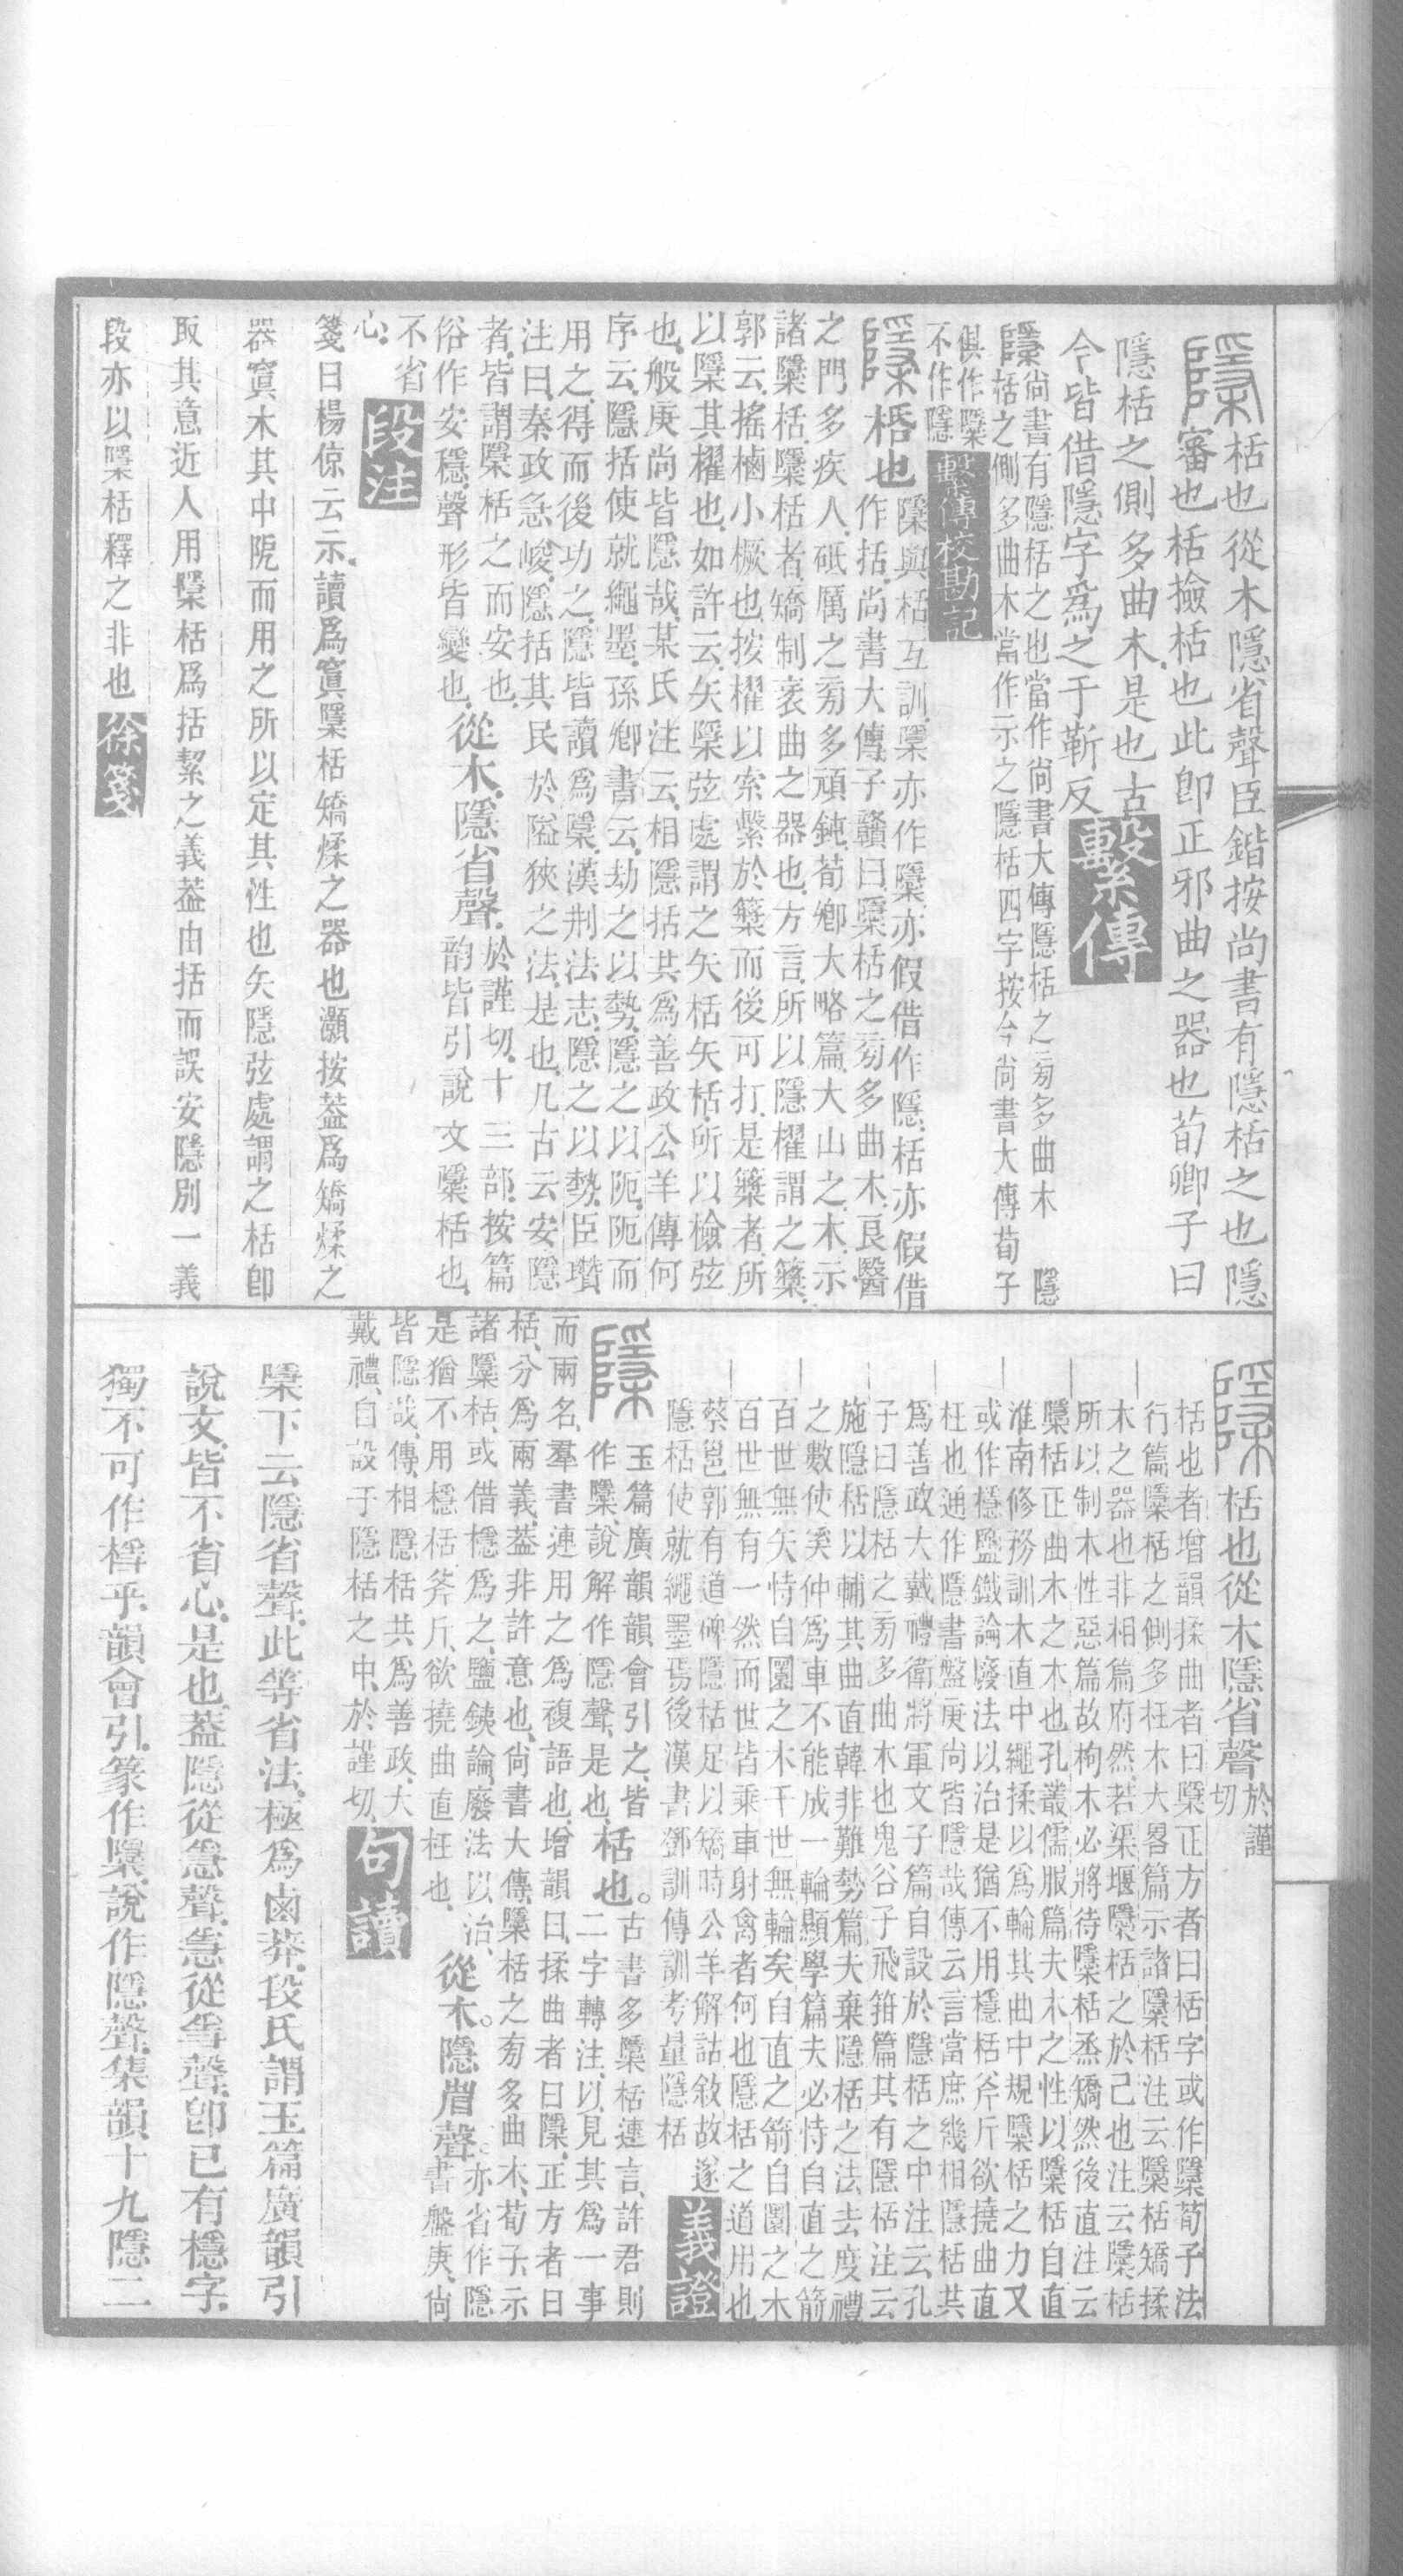 㯳栝也從木隱省聲臣鍇按尚書有隱栝之也隱
審也栝撿栝也此卽正邪曲之器也荀卿子曰
隱栝之側多曲木是也古
今皆借隱字爲之于靳反繫傳
㯳尚書有隱栝之也當作尚書大傳隱栝之㫄多曲木 隱
栝之側多曲木當作示之隱栝四字按今尚書大傳荀子
俱作㯳
不作隱繫傳校勘記
㯳栝也㯳與栝互訓㯳亦作檃亦假借作隱栝亦假借
作括尚書大傳子贛曰檃栝之㫄多曲木良醫
之門多疾人砥厲之㫄多頑鈍荀卿大略篇大山之木示
諸檃栝檃栝者矯制衺曲之器也方言所以隱櫂謂之䉁
郭云搖樐小橛也按櫂以索繫於䉁而後可打是䉁者所
以檃其櫂也如許云矢檃弦處謂之矢栝矢栝所以檢弦
也般庚尚皆隱哉某氏注云相隱括共爲善政公羊傳何
序云隱括使就繩墨孫卿書云劫之以勢隱之以阨阨而
用之得而後功之隱皆讀爲㯳漢刑法志隱之以勢臣瓚
注曰秦政急峻隱括其民於隘狹之法是也凡古云安隱
者皆謂檃栝之而安也從木隱省聲於謹切十三部按篇
俗作安穩聲形皆變也韵皆引說文檃栝也
不省
心段注
箋曰楊倞云示讀爲窴檃栝矯煣之器也灝按葢爲矯煣之
器窴木其中阸而用之所以定其性也矢隱弦處謂之栝卽
取其意近人用檃栝爲括絜之義葢由括而誤安隱別一義
段亦以檃栝釋之非也徐箋
㯳栝也從木隱省聲於謹
切
栝也者增韻揉曲者曰檃正方者曰栝字或作檃荀子法
行篇檃栝之側多枉木大畧篇示諸檃栝注云檃栝矯揉
木之器也非相篇府然若渠堰檃栝之於己也注云檃栝
所以制木性惡篇故枸木必將待檃栝烝矯然後直注云
檃栝正曲木之木也孔叢儒服篇夫木之性以檃栝自直
淮南修務訓木直中繩揉以爲輪其曲中規檃栝之力又
或作穩鹽鐵論廢法以治是猶不用穩栝斧斤欲撓曲直
枉也通作隱書盤庚尚皆隱哉傳云言當庶幾相隱栝共
爲善政大戴禮衛將軍文子篇自設於隱栝之中注云孔
子曰隱栝之㫄多曲木也鬼谷子飛箝篇其有隱栝注云
施隱栝以輔其曲直韓非難勢篇夫棄隱栝之法去度禮
之數使奚仲爲車不能成一輪顯學篇夫必恃自直之箭
百世無矢恃自圜之木千世無輪矣自直之箭自圜之木
百世無有一然而世皆乘車射禽者何也隱栝之道用也
蔡邕郭有道碑隱栝足以矯時公羊解詁敘故遂
隱栝使就繩墨焉後漢書鄧訓傳訓考量隱栝義證
㯳玉篇廣韻韻會引之皆
作檃說解作隱聲是也栝也。古書多檃栝連言許君則
二字轉注以見其爲一事
而兩名羣書連用之爲複語也增韻曰揉曲者曰檃正方者曰
栝分爲兩義葢非許意也尚書大傳檃栝之㫄多曲木荀子示
諸檃栝或借穩爲之鹽鐵論廢法以治從木。隱省聲。亦省作隱
是猶不用穩栝斧斤欲撓曲直枉也書盤庚尚
皆隱哉傳相隱栝共爲善政大
戴禮自設于隱栝之中於謹切句讀
㯳下云隱省聲此等省法極爲鹵莽段氏謂玉篇廣韻引
說文皆不省心是也葢隱從㥯聲㥯從㒚聲卽已有穩字
獨不可作㯳乎韻會引篆作檃說作隱聲集韻十九隱二